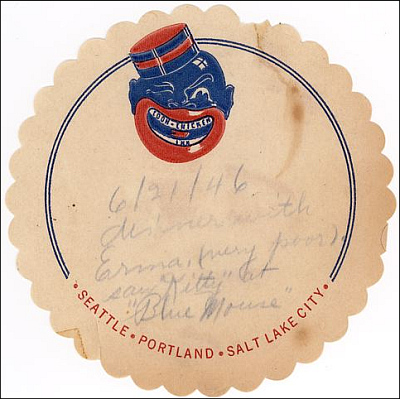 COON-CHICKEN
INN
6/21/46.
dinner with
Erma, (very poor),
saw "Kitty" at
"Blue Mouse"
• SEATTLE • PORTLAND • SALT LAKE CITY •